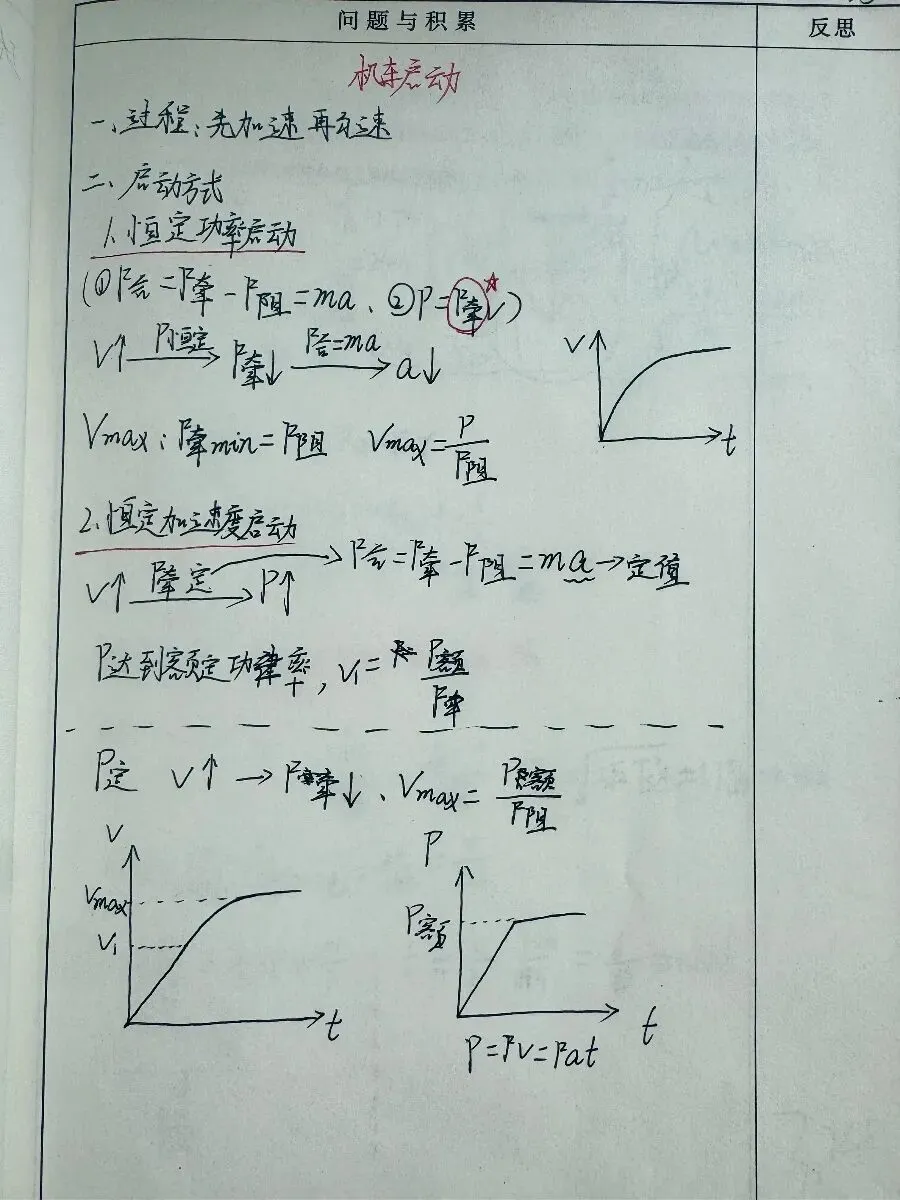 问题与积累
反思
机车启动
一、过程:先加速再匀速
二、启动方式
1、恒定功率启动
(①F合=F牵-F阻=ma、②P=F牵V) ☆
V↑ P恒定→ F牵↓ F合=ma→ a↓
V
t
Vmax:F牵min=F阻 Vmax=P/F阻
2、恒定加速度启动
V↑ F牵定→ P↑ → F合=F牵-F阻=ma→定值
P达到额定功率,V1=P额/F牵
P定 V↑→F牵↓、Vmax=P额/F阻
V
Vmax
V1
t
P
P额
t
P=FV=Fat